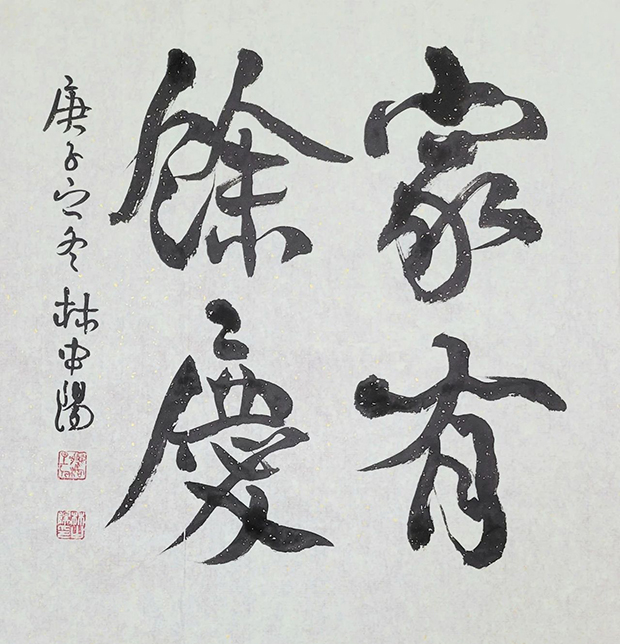 家有
餘慶
庚子之冬 林中陽